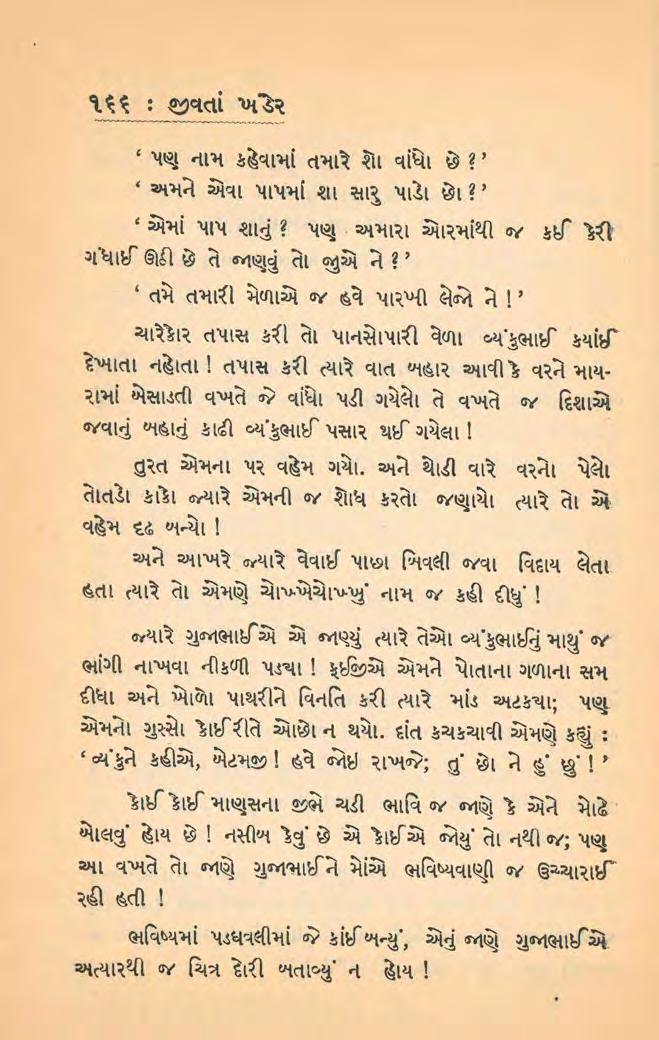 ૧૬૬ : જીવતાં ખંડેર
‘ પણ નામ કહેવામાં તમારે શો વાંધો છે ?’
‘ અમને એવા પાપમાં શા સારુ પાડો છો ?’
‘ એમાં પાપ શાનું ? પણ અમારા ઓરમાંથી જ કઈ કેરી
ગંધાઈ ઊઠી છે તે જાણવું તો જુએ ને ?’
‘ તમે તમારી મેળાએ જ હવે પારખી લેજો ને !’
ચારેકોર તપાસ કરી તો પાનસોપારી વેળા વ્યંકુભાઈ કયાંઈ
દેખાતા નહોતા ! તપાસ કરી ત્યારે વાત બહાર આવી કે વરને માય-
રામાં બેસાડતી વખતે જે વાંધો પડી ગયેલો તે વખતે જ દિશાએ
જવાનું બહાનું કાઢી વ્યંકુભાઈ પસાર થઈ ગયેલા !
તુરત એમના પર વહેમ ગયો. અને થોડી વારે વરનો પેલો
તોતડો કાકો જ્યારે એમની જ શોધ કરતો જણાયો ત્યારે તો એ
વહેમ દૃઢ બન્યો !
અને આખરે જ્યારે વેવાઈ પાછા ત્રિવલી જવા વિદાય લેતા
હતા ત્યારે તો એમણે ચોખ્ખેચોખ્ખું નામ જ કહી દીધું !
જ્યારે ગુજાભાઈએ એ જાણ્યું ત્યારે તેઓ વ્યંકુભાઈનું માથું જ
ભાંગી નાખવા નીકળી પડ્યા ! ફઈજીએ એમને પોતાના ગળાના સમ
દીધા અને ખોળો પાથરીને વિનતિ કરી ત્યારે માંડ અટકયા; પણ
એમનો ગુસ્સો કોઈ રીતે ઓછો ન થયો. દાંત કચકચાવી એમણે કહ્યું :
‘ વ્યંકુને કહીએ, બેટમજી ! હવે જોઇ રાખજે; તું છો ને હું છું !’
કોઈ કોઈ માણસના જીભે ચડી ભાવિ જ જાણે કે એને મોઢે
બોલવું હોય છે ! નસીબ કેવું છે એ કોઈએ જોયું તો નથી જ; પણ
આ વખતે તો જાણે ગુજાભાઈને મોંએ ભવિષ્યવાણી જ ઉચ્ચારાઈ
રહી હતી !
ભવિષ્યમાં પડઘવલીમાં જે કાંઈ બન્યું, એનું જાણે ગુજાભાઈએ
અત્યારથી જ ચિત્ર દોરી બતાવ્યું ન હોય !